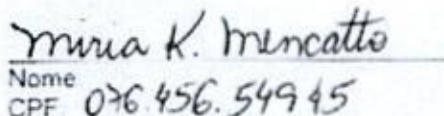 Miria K. Mencatto
Nome
CPF 076.456.549 45